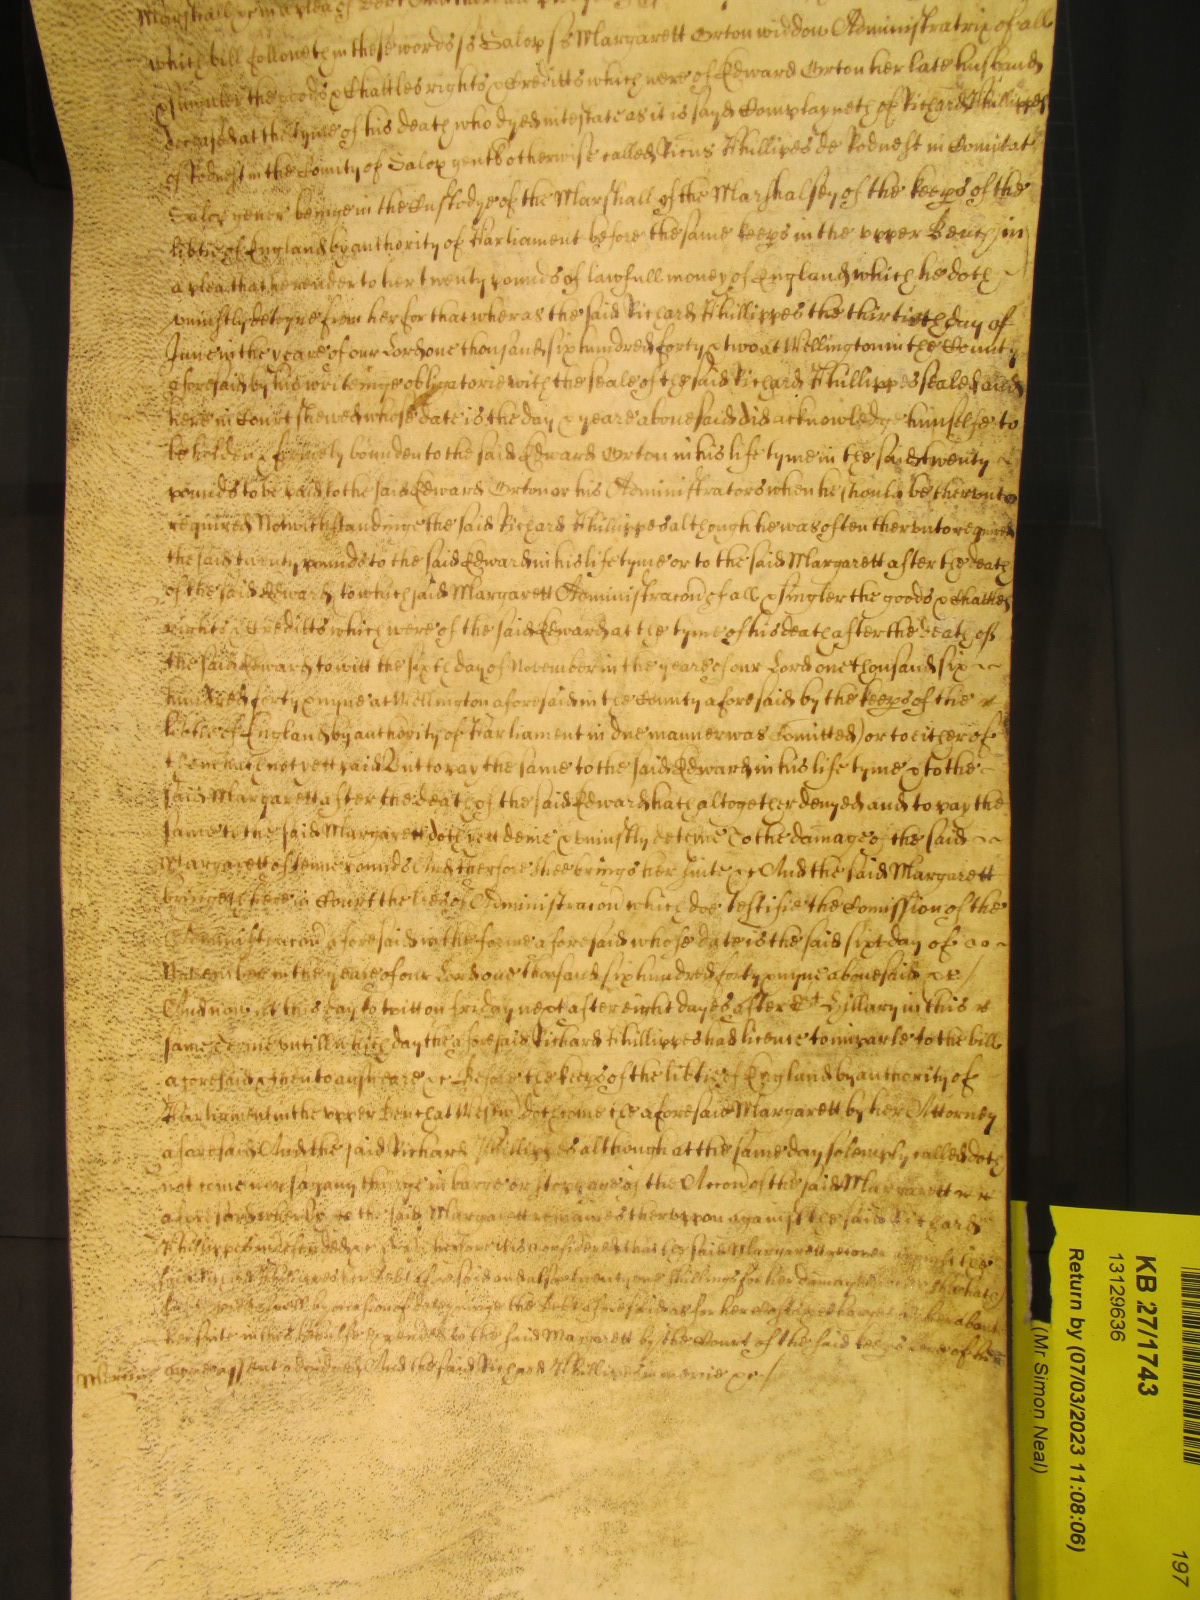 Marshall &c in a plea of Debt
which bill followeth in these words ss Salop ss Margarett Orton widdow Administratrix of all
& singuler the goods & Chattles rights & Creditts which were of Edward Orton her late husband
deceased at the tyme of his death who dyed intestate as it is sayd Complayneth of Richard Phillippes
of Rodnest in the County of Salop gent otherwise called Ricus Phillipes de Rodnest in Comitat
Salop gener beinge in the Custodye of the Marshall of the Marshalsey of the keeps of the
libtie of England by authority of Parliament before the same keeps in the upper Bench in
a plea that he render to her twenty pounds of lawfull money of England which he doth
uniustly deteyne from her for that wheras the said Richard Phillippes the thirtieth day of
June in the yeare of our Lord one thousand six hundred forty & two at Wellington in the County
aforesaid by his writeinge obligatorie with the seale of the said Richard Phillippes sealed and
here in Court shewed whose date is the day & yeare abovesaid did acknowledge himselfe to
be holden & firmely bounden to the said Edward Orton in his life tyme in the said twenty
pounds to be paid to the said Edward Orton or his Administrators when he should be therunto
required Notwithstandinge the said Richard Phillippes although he was often therunto required
the said twenty pounds to the said Edward in his life tyme or to the said Margarett after the death
of the said Edward (to which said Margarett Administracon of all & singler the goods & Chattles
rights & Creditts which were of the said Edward at the tyme of his death after the death of
the said Edward to witt the sixth day of November in the yeare of our Lord one thousand six
hundred forty & nyne at Wellington aforesaid in the County aforesaid by the keeps of the
libtie of England by authority of Parliament in due manner was Comitted) or to either of
them hath not yett paid But to pay the same to the said Edward in his life tyme & to the
said Margarett after the death of the said Edward hath altogether denyed and to pay the
same to the said Margarett doth yett denie & uniustly deteine To the damage of the said
Margarett of tenne pounds And therfore shee brings her suite &c And the said Margarett
bringeth here in Court the lres of Administracon which doe testifie the Comission of the
Administracon aforesaid in the forme aforesaid whose date is the said sixt day of
November in the yeare of our Lord one thousand six hundred forty & nyne abovesaid &c
And now at this day to witt on friday next after eight dayes after St Hillary in this
same terme untill which day the aforesaid Richard Phillippes had licence to imparle to the bill
aforesaid & then to answeare &c Before the keeps of the libtie of England by authority of
Parliament in the upper Bench at Westm doth come the aforesaid Margarett by her Attorney
aforesaid And the said Richard Phillippes although at the same day solemply called doth
not come nor say any thinge in barre or stoppage of the Accon of the said Margarett
aforesaid wherby the said Margarett remaines therupon against the said Richard
Phillippes undefended &c Therefore it is considered that the said Margarett recover against the
said Richard Phillippes her debt aforesaid and alsoe twenty one shillings for her damages which
by occasion of deteyninge the Debt aforesaid as for her Costs & charges by her about
her suite in this behalfe to the said Margarett by the Court of the said keeps here of
assent adiudged And the said Richard Phillippes in mercie &c
Mercie
KB 27/1743
13129636
Return by (07/03/2023 11:08:06)
(Mr Simon Neal)
197